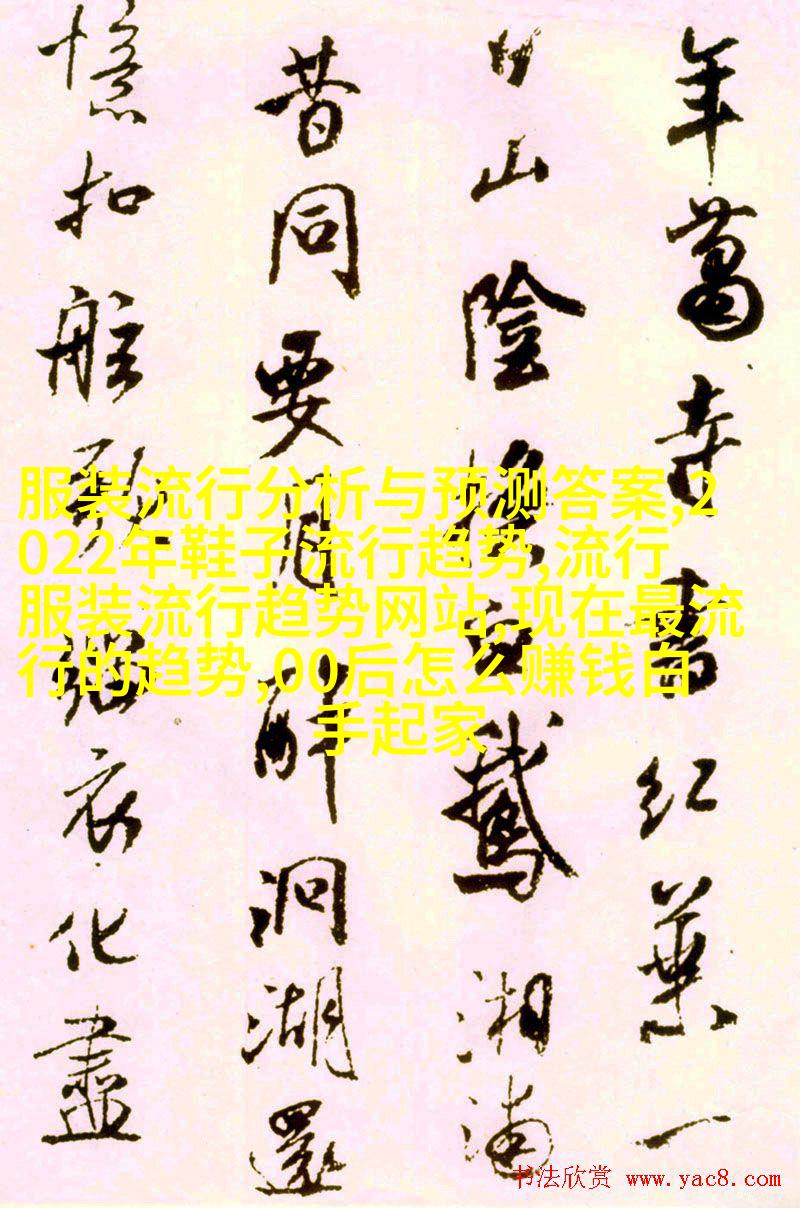 年蕭寺書紅葉一
日山陰換白鵝湘浦
昔同要月醉洞湖還
憶扣舷歌緇衣化盡
服装流行分析与预测答案,2
022年鞋子流行趋势,流行
服装流行趋势网站,现在最流
行的趋势,00后怎么赚钱白
手起家
书法欣赏 www.yac8.com